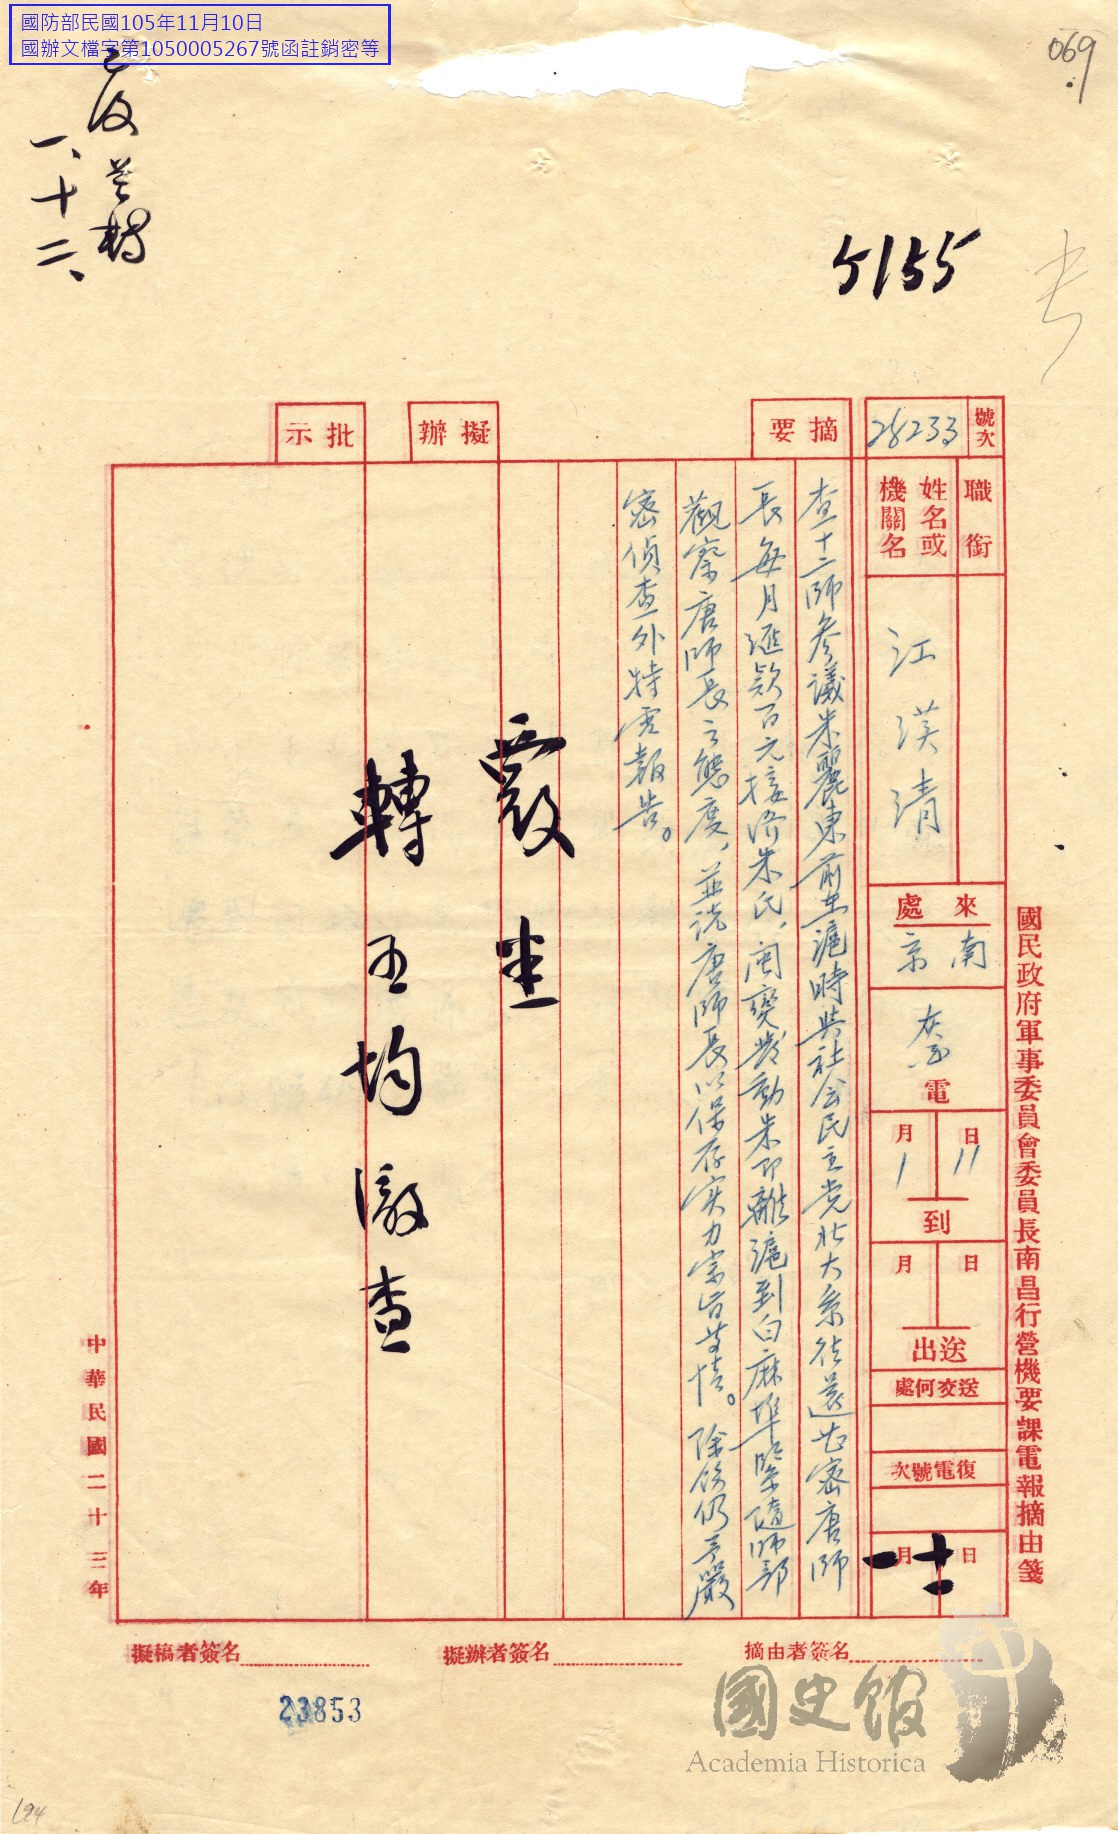 國防部民國105年11月10日
國辦文檔字第1050005267號函註銷密等
069
已復並轉
一、十二、
5155
號次
28233
摘要
擬辦
批示
職銜
姓名或
機關名
江漢清
來處
南京
電
11日
1月
到
日
月
送出
送交何處
復電號次
十二日
一月
查十二師參議朱麗東前在滬時與社会民主党北大系往還甚密唐師
長每月滙款百元接济朱氏、闽變發動朱即離滬到白麻埠緊隨師部
觀察唐師長之態度、並説唐師長以保存实力宗旨等情。除飭仍予嚴
密偵查外特電報告。
覆 悉
轉王均澈查
國民政府軍事委員會委員長南昌行營機要課電報摘由箋
中華民國二十三年
摘由者簽名
擬辦者簽名
擬稿者簽名
23853
國史館
Academia Historica
194